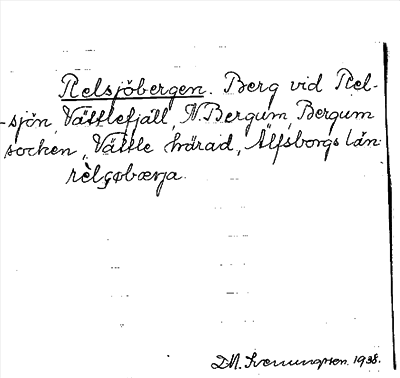 Relsjöbergen. Berg vid Rel-
-sjön, Vättlefjäll, N. Bergum, Bergum
socken, Vättle härad, Älfsborgs län
rèlşøbærja.
D.N. Svenungsson. 1938.